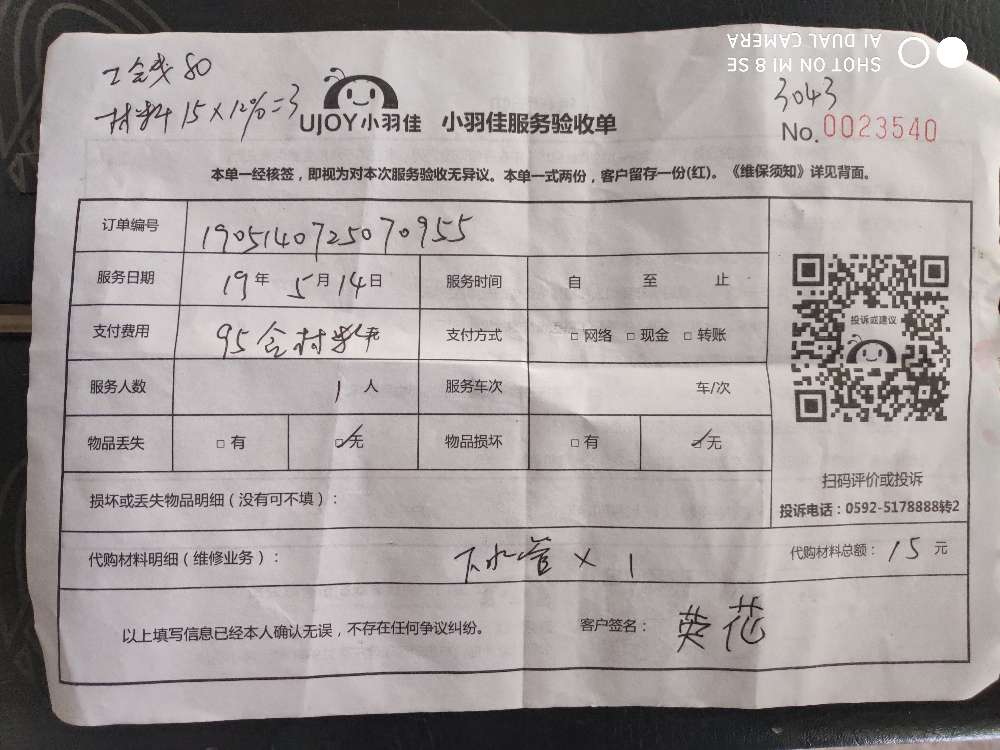 工钱80
材料15×12%=3
UJOY小羽佳 小羽佳服务验收单
3043
No.0023540
SHOT ON MI 8 SE
AI DUAL CAMERA
本单一经核签，即视为对本次服务验收无异议。本单一式两份，客户留存一份(红)。《维保须知》详见背面。
订单编号 1905140725070955
服务日期 19年 5月14日 服务时间 自 至 止
支付费用 95含材料 支付方式 □ 网络 □ 现金 □ 转账
服务人数 1 人 服务车次 车/次
物品丢失 □ 有 ☑ 无 物品损坏 □ 有 ☑ 无
损坏或丢失物品明细（没有可不填）：
投诉或建议
扫码评价或投诉
投诉电话：0592-5178888转2
代购材料明细（维修业务）： 下水管×1 代购材料总额：15 元
以上填写信息已经本人确认无误，不存在任何争议纠纷。 客户签名：英花